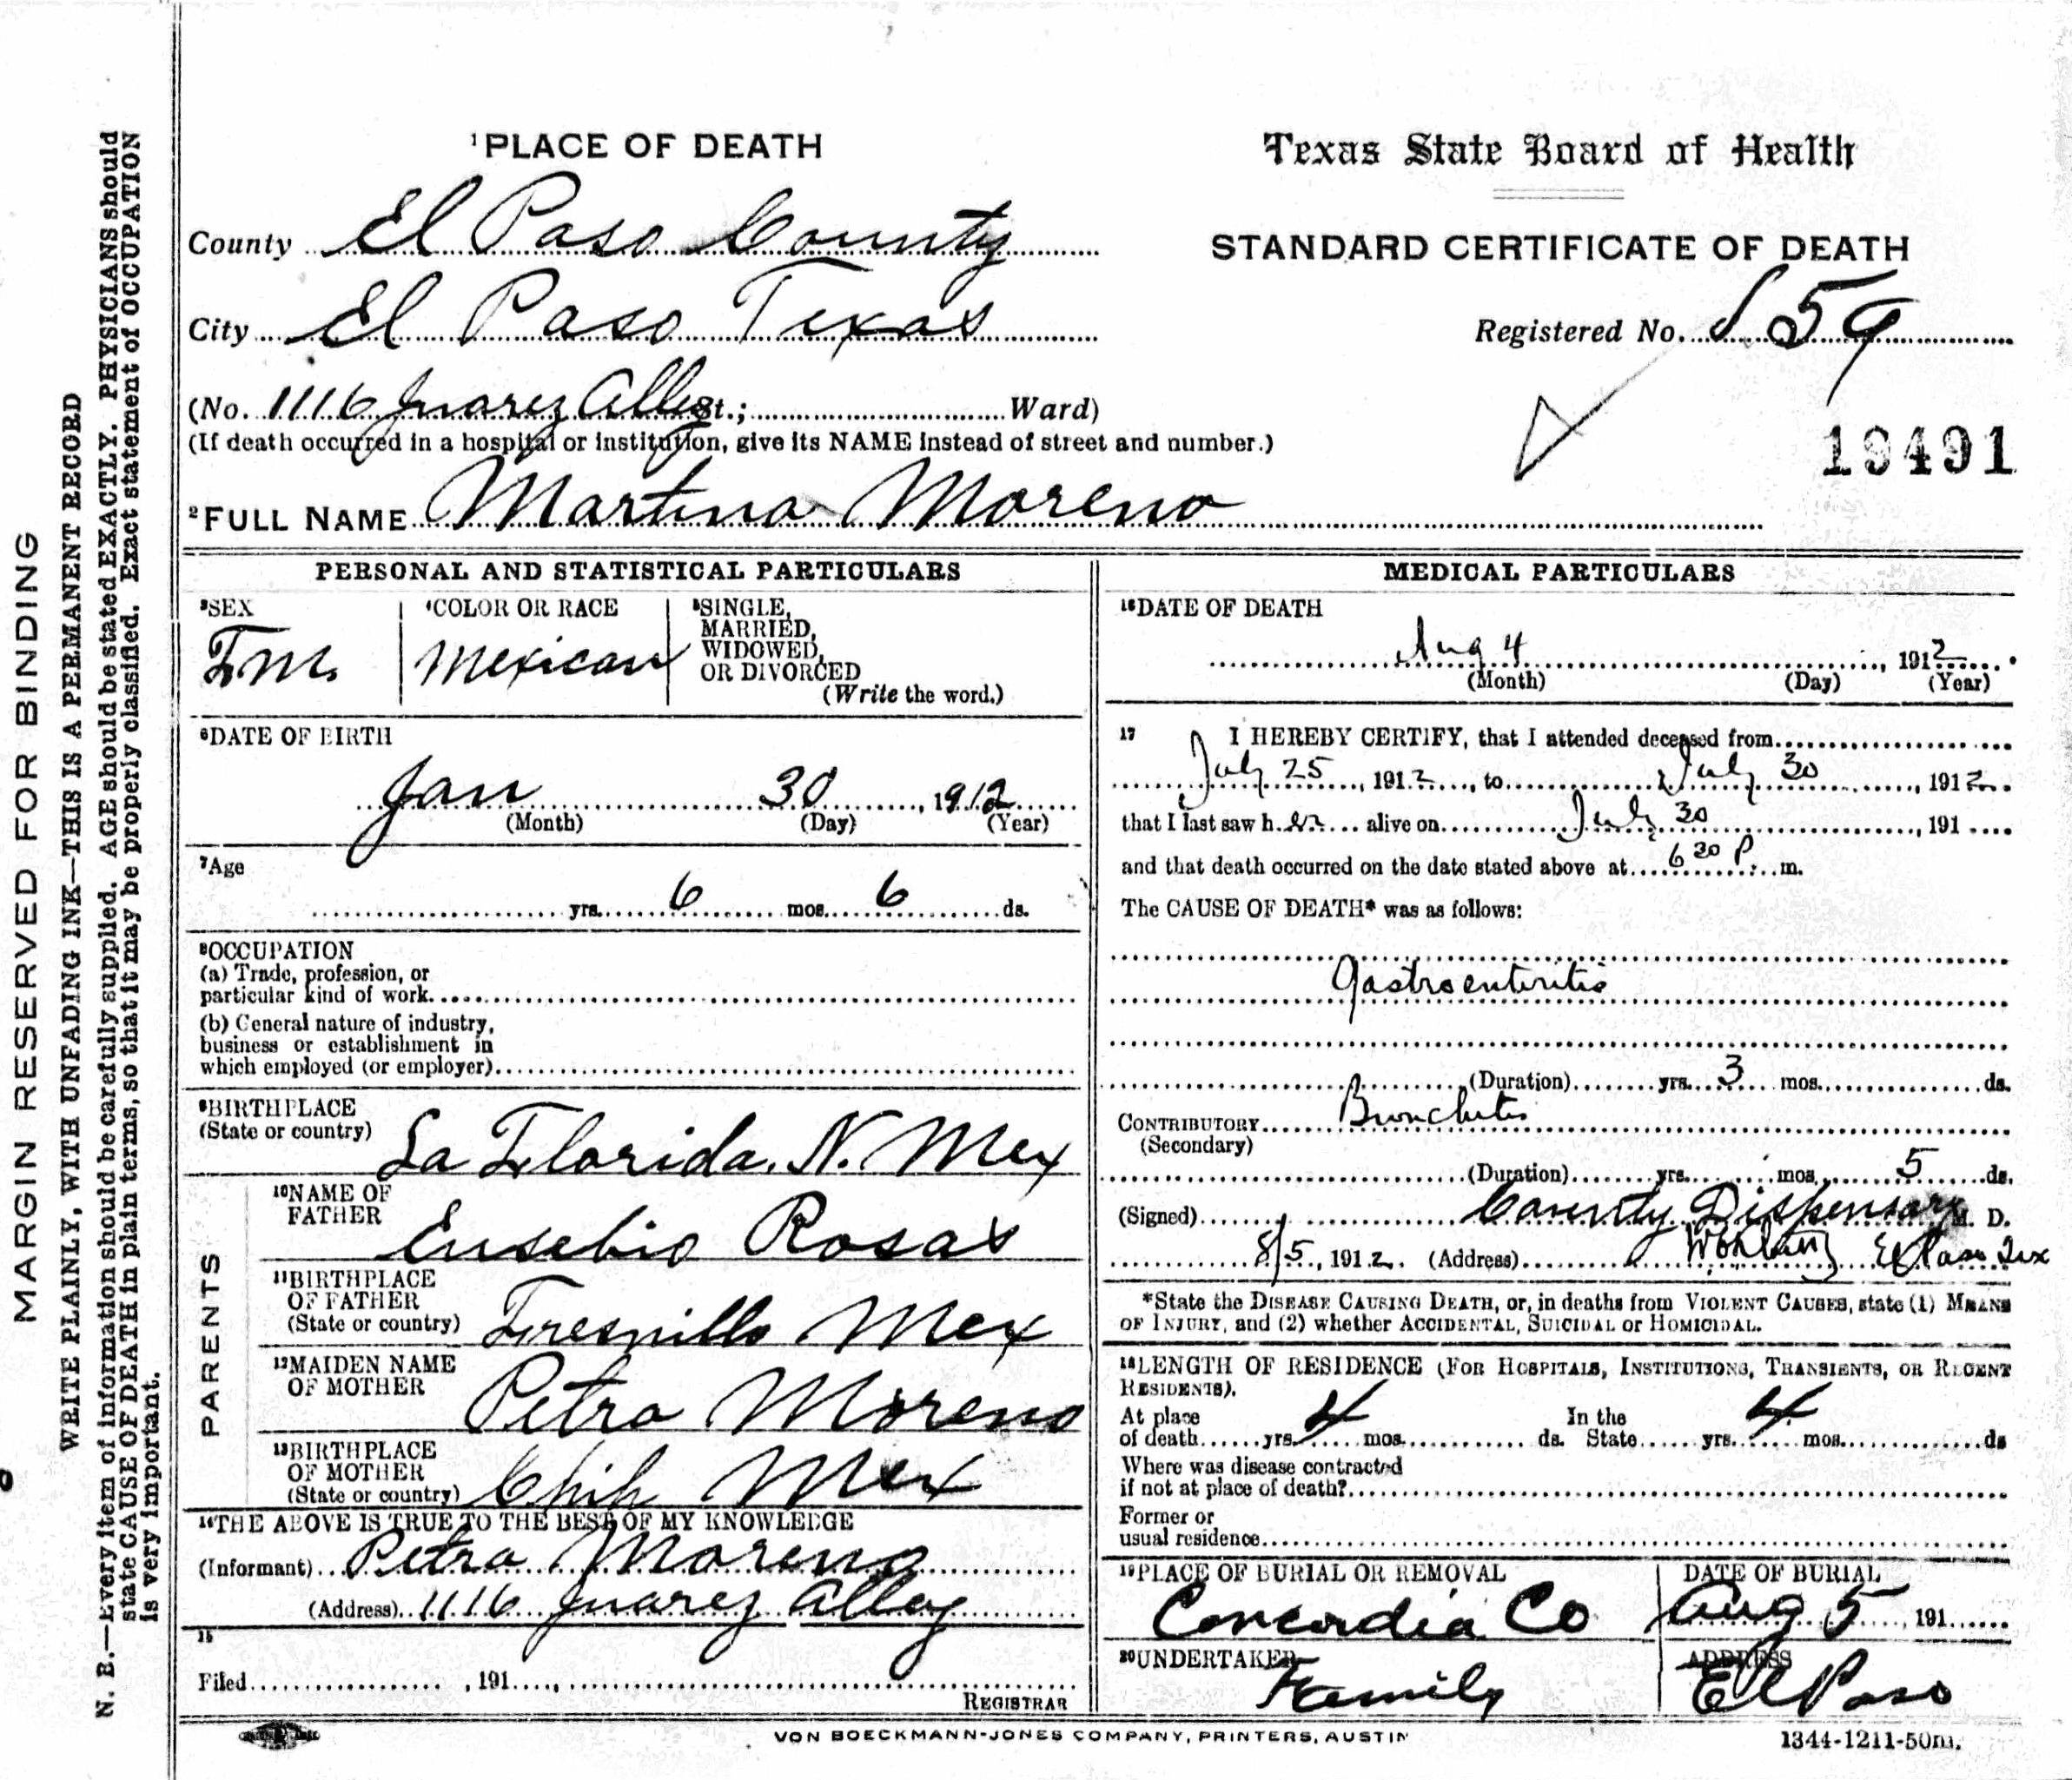 MARGIN RESERVED FOR BINDING
WRITE PLAINLY, WITH UNFADING INK—THIS IS A PERMANENT RECORD
N. B.—Every item of information should be carefully supplied. AGE should be stated EXACTLY. PHYSICIANS should
state CAUSE OF DEATH in plain terms, so that it may be properly classified. Exact statement of OCCUPATION
is very important.
1 PLACE OF DEATH
County El Paso County
City El Paso Texas
(No. 1116 Juarez Alley St.; Ward)
(If death occurred in a hospital or institution, give its NAME instead of street and number.)
2 FULL NAME Martina Moreno
Texas State Board of Health
STANDARD CERTIFICATE OF DEATH
Registered No. 859
19491
PERSONAL AND STATISTICAL PARTICULARS
3 SEX
Fm.
4 COLOR OR RACE
Mexican
5 SINGLE,
MARRIED,
WIDOWED,
OR DIVORCED
(Write the word.)
6 DATE OF BIRTH
Jan 30, 1912
(Month) (Day) (Year)
7 Age
yrs. 6 mos. 6 ds.
8 OCCUPATION
(a) Trade, profession, or
particular kind of work
(b) General nature of industry,
business or establishment in
which employed (or employer)
9 BIRTHPLACE
(State or country) La Florida. N. Mex
PARENTS
10 NAME OF
FATHER Eusebio Rosas
11 BIRTHPLACE
OF FATHER
(State or country) Fresnillo Mex
12 MAIDEN NAME
OF MOTHER Petra Moreno
13 BIRTHPLACE
OF MOTHER
(State or country) Chih Mex
14 THE ABOVE IS TRUE TO THE BEST OF MY KNOWLEDGE
(Informant) Petra Moreno
(Address) 1116 Juarez Alley
15
Filed , 191 ,
REGISTRAR
MEDICAL PARTICULARS
16 DATE OF DEATH
Aug 4, 1912
(Month) (Day) (Year)
17 I HEREBY CERTIFY, that I attended deceased from
July 25, 1912, to July 30, 1912
that I last saw her alive on July 30, 191
and that death occurred on the date stated above at 6 30 P. m.
The CAUSE OF DEATH* was as follows:
Gastroenteritis
(Duration) yrs. 3 mos. ds.
CONTRIBUTORY Bronchitis
(Secondary)
(Duration) yrs. mos. 5 ds.
(Signed) County Dispensary M. D.
8/5, 1912. (Address) El Paso Tex
*State the DISEASE CAUSING DEATH, or, in deaths from VIOLENT CAUSES, state (1) MEANS
OF INJURY, and (2) whether ACCIDENTAL, SUICIDAL or HOMICIDAL.
18 LENGTH OF RESIDENCE (FOR HOSPITALS, INSTITUTIONS, TRANSIENTS, OR RECENT
RESIDENTS).
At place In the
of death yrs. 4 mos. ds. State yrs. 4 mos. ds
Where was disease contracted
if not at place of death?
Former or
usual residence
19 PLACE OF BURIAL OR REMOVAL
Concordia Co
DATE OF BURIAL
Aug 5, 191
20 UNDERTAKER
Family
ADDRESS
El Paso
VON BOECKMANN-JONES COMPANY, PRINTERS, AUSTIN
1344-1211-50m.